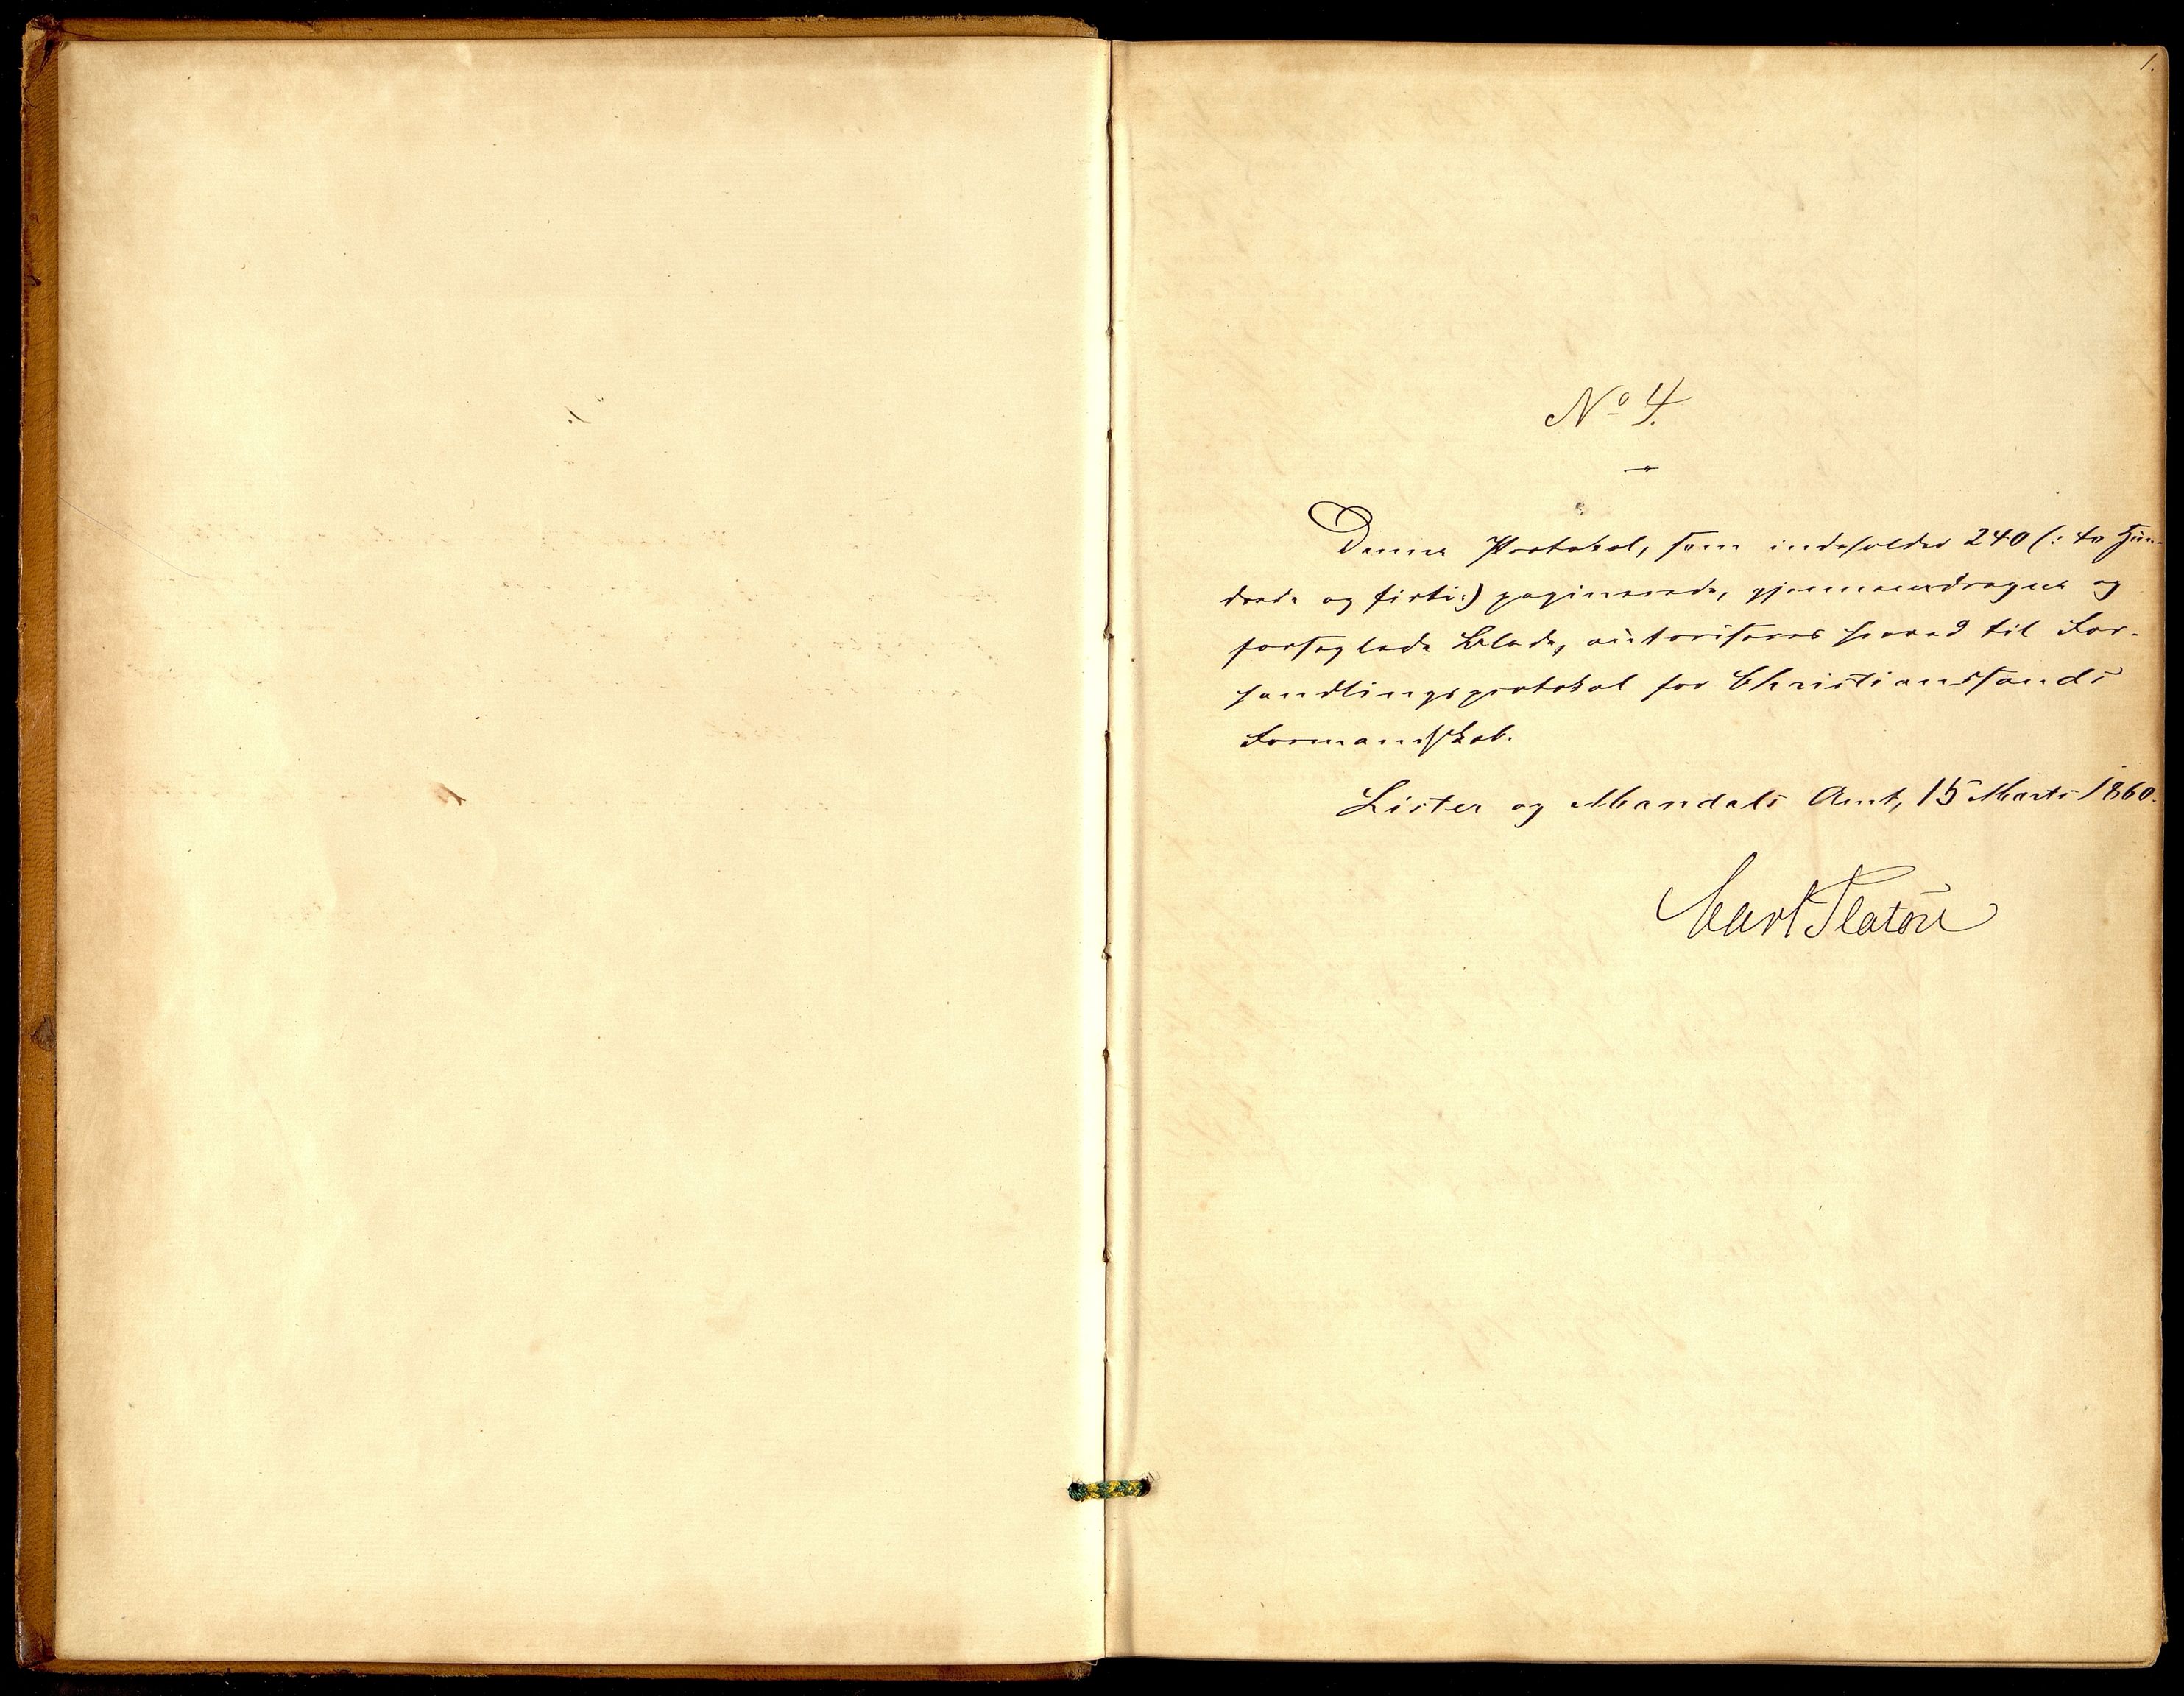 1.
No 4.
Denne Protokol, som indeholder 240 (: to Hun-
drede og firti :) paginerede, gjennemdragne og
forseglede Blade, autoriseres herved til For-
handlingsprotokol for Christianssands
Formandskab.
Lister og Mandals Amt, 15 Marts 1860.
Carl Platou